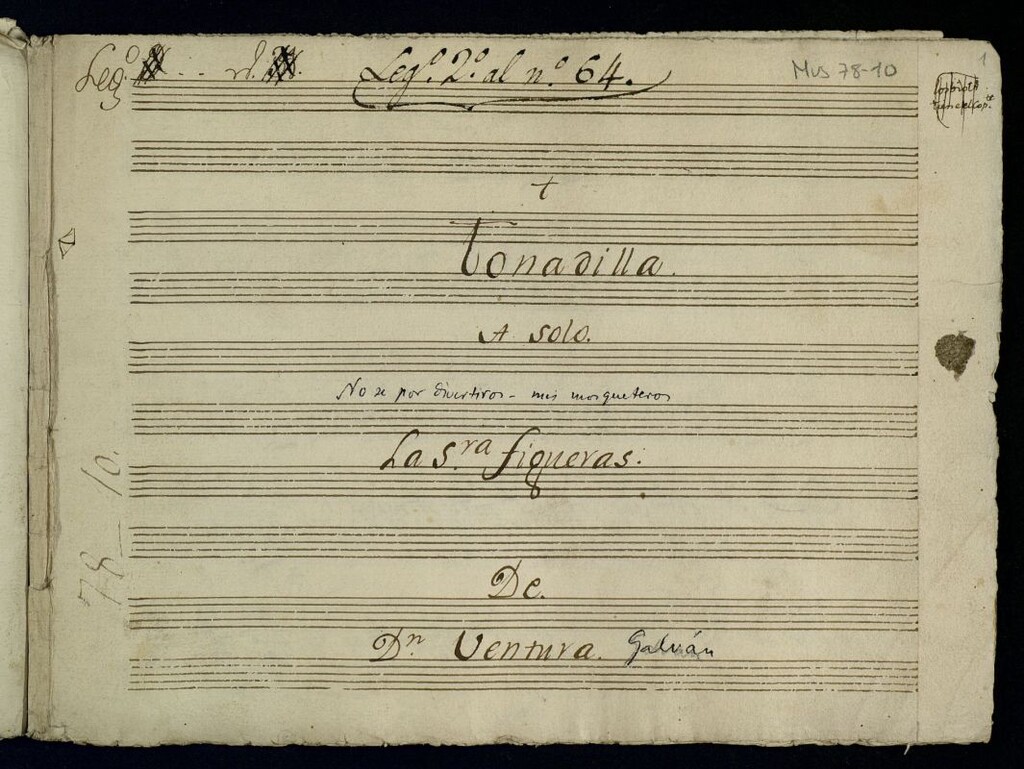 Leg.º n.
Leg.º 2.º al n.º 64.
Mus 78-10
1
+
Tonadilla.
A solo.
No se por divertiros - mis mosqueteros
La S.ra figueras.
78-10.
De.
Dn Ventura. Galván